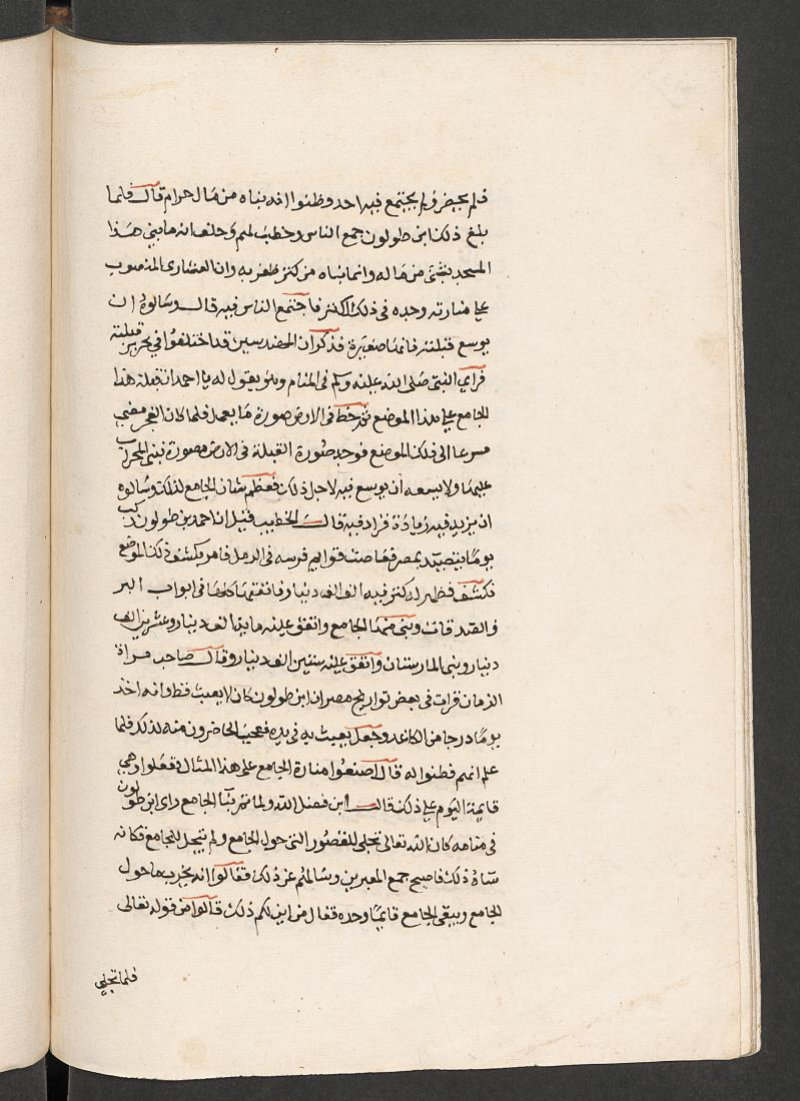 فلم يحضر ولم يجتمع فيه احد وظنوا انه بناه من مال حرام قال فلما
بلغ ذلك ابن طولون جمع الناس وخطب لهم وحلف انه ما بني هذا
المسجد بشئ من ماله وانما بناه من كنز ظفر به وان العشاري المنصوب
على منارته وجده في ذلك الكنز فاجتمع الناس فيه قال وسالوه ان
يوسع قبلته فانها صغيرة فذكر ان المهندسين قد اختلفوا في تحرير قبلته
فراي النبي صلى الله عليه وسلم في المنام وهو يقول له يا احمد ابن قبلة هذا
الجامع على هذا الموضع وخط في الارض صورة ما يعمل فلما كان الفجر مضي
مسرعا الى ذلك الموضع فوجد صورة القبلة في الارض مصورة فبني المحراب
عليها ولا يسعه ان يوسع فيه لاجل ذلك فعظم شان الجامع لذلك وسالوه
ان يزيد فيه زيادة فزاد فيه قال الخطيب فقيل ان احمد بن طولون ركب
يوما يتصيد بمصر فغاصت قوايم فرسه في الرمل فامر بكشف ذلك الموضع
فكشف فظهر له كنز فيه الف الف دينار فانفقها كلها في ابواب البر
والصدقات وبني هذا الجامع وانفق عليه مايه الف دينار وعشرين الف
دينار وبنى المارستان وانفق عليه ستين الف دينار وقال صاحب مراة
الزمان قرات في بعض تواريخ مصر ان ابن طولون كان لا يعبث قط وانه اخذ
يوما درجا من الكاغد وجعل يعبث به في يده فعجب الحاضرون منه لذلك فلما
علم انهم فطنوا له قال اصنعوا منارة الجامع على هذا المثال ففعلوا وهي
قايمة اليوم على ذلك قال ابن فضل الله ولما تم بنا الجامع راى ابن طولون
في منامه كان الله تعالى تجلي للقصور التي حول الجامع ولم يتجل للجامع فكانه
ساه ذلك فاصبح جمع المعبرين وسالهم عن ذلك فقالوا انه يخرب ما حول
الجامع ويبقي الجامع قايما وحده فقال من اين لكم ذلك قالوا من قوله تعالى
فلما تجلي